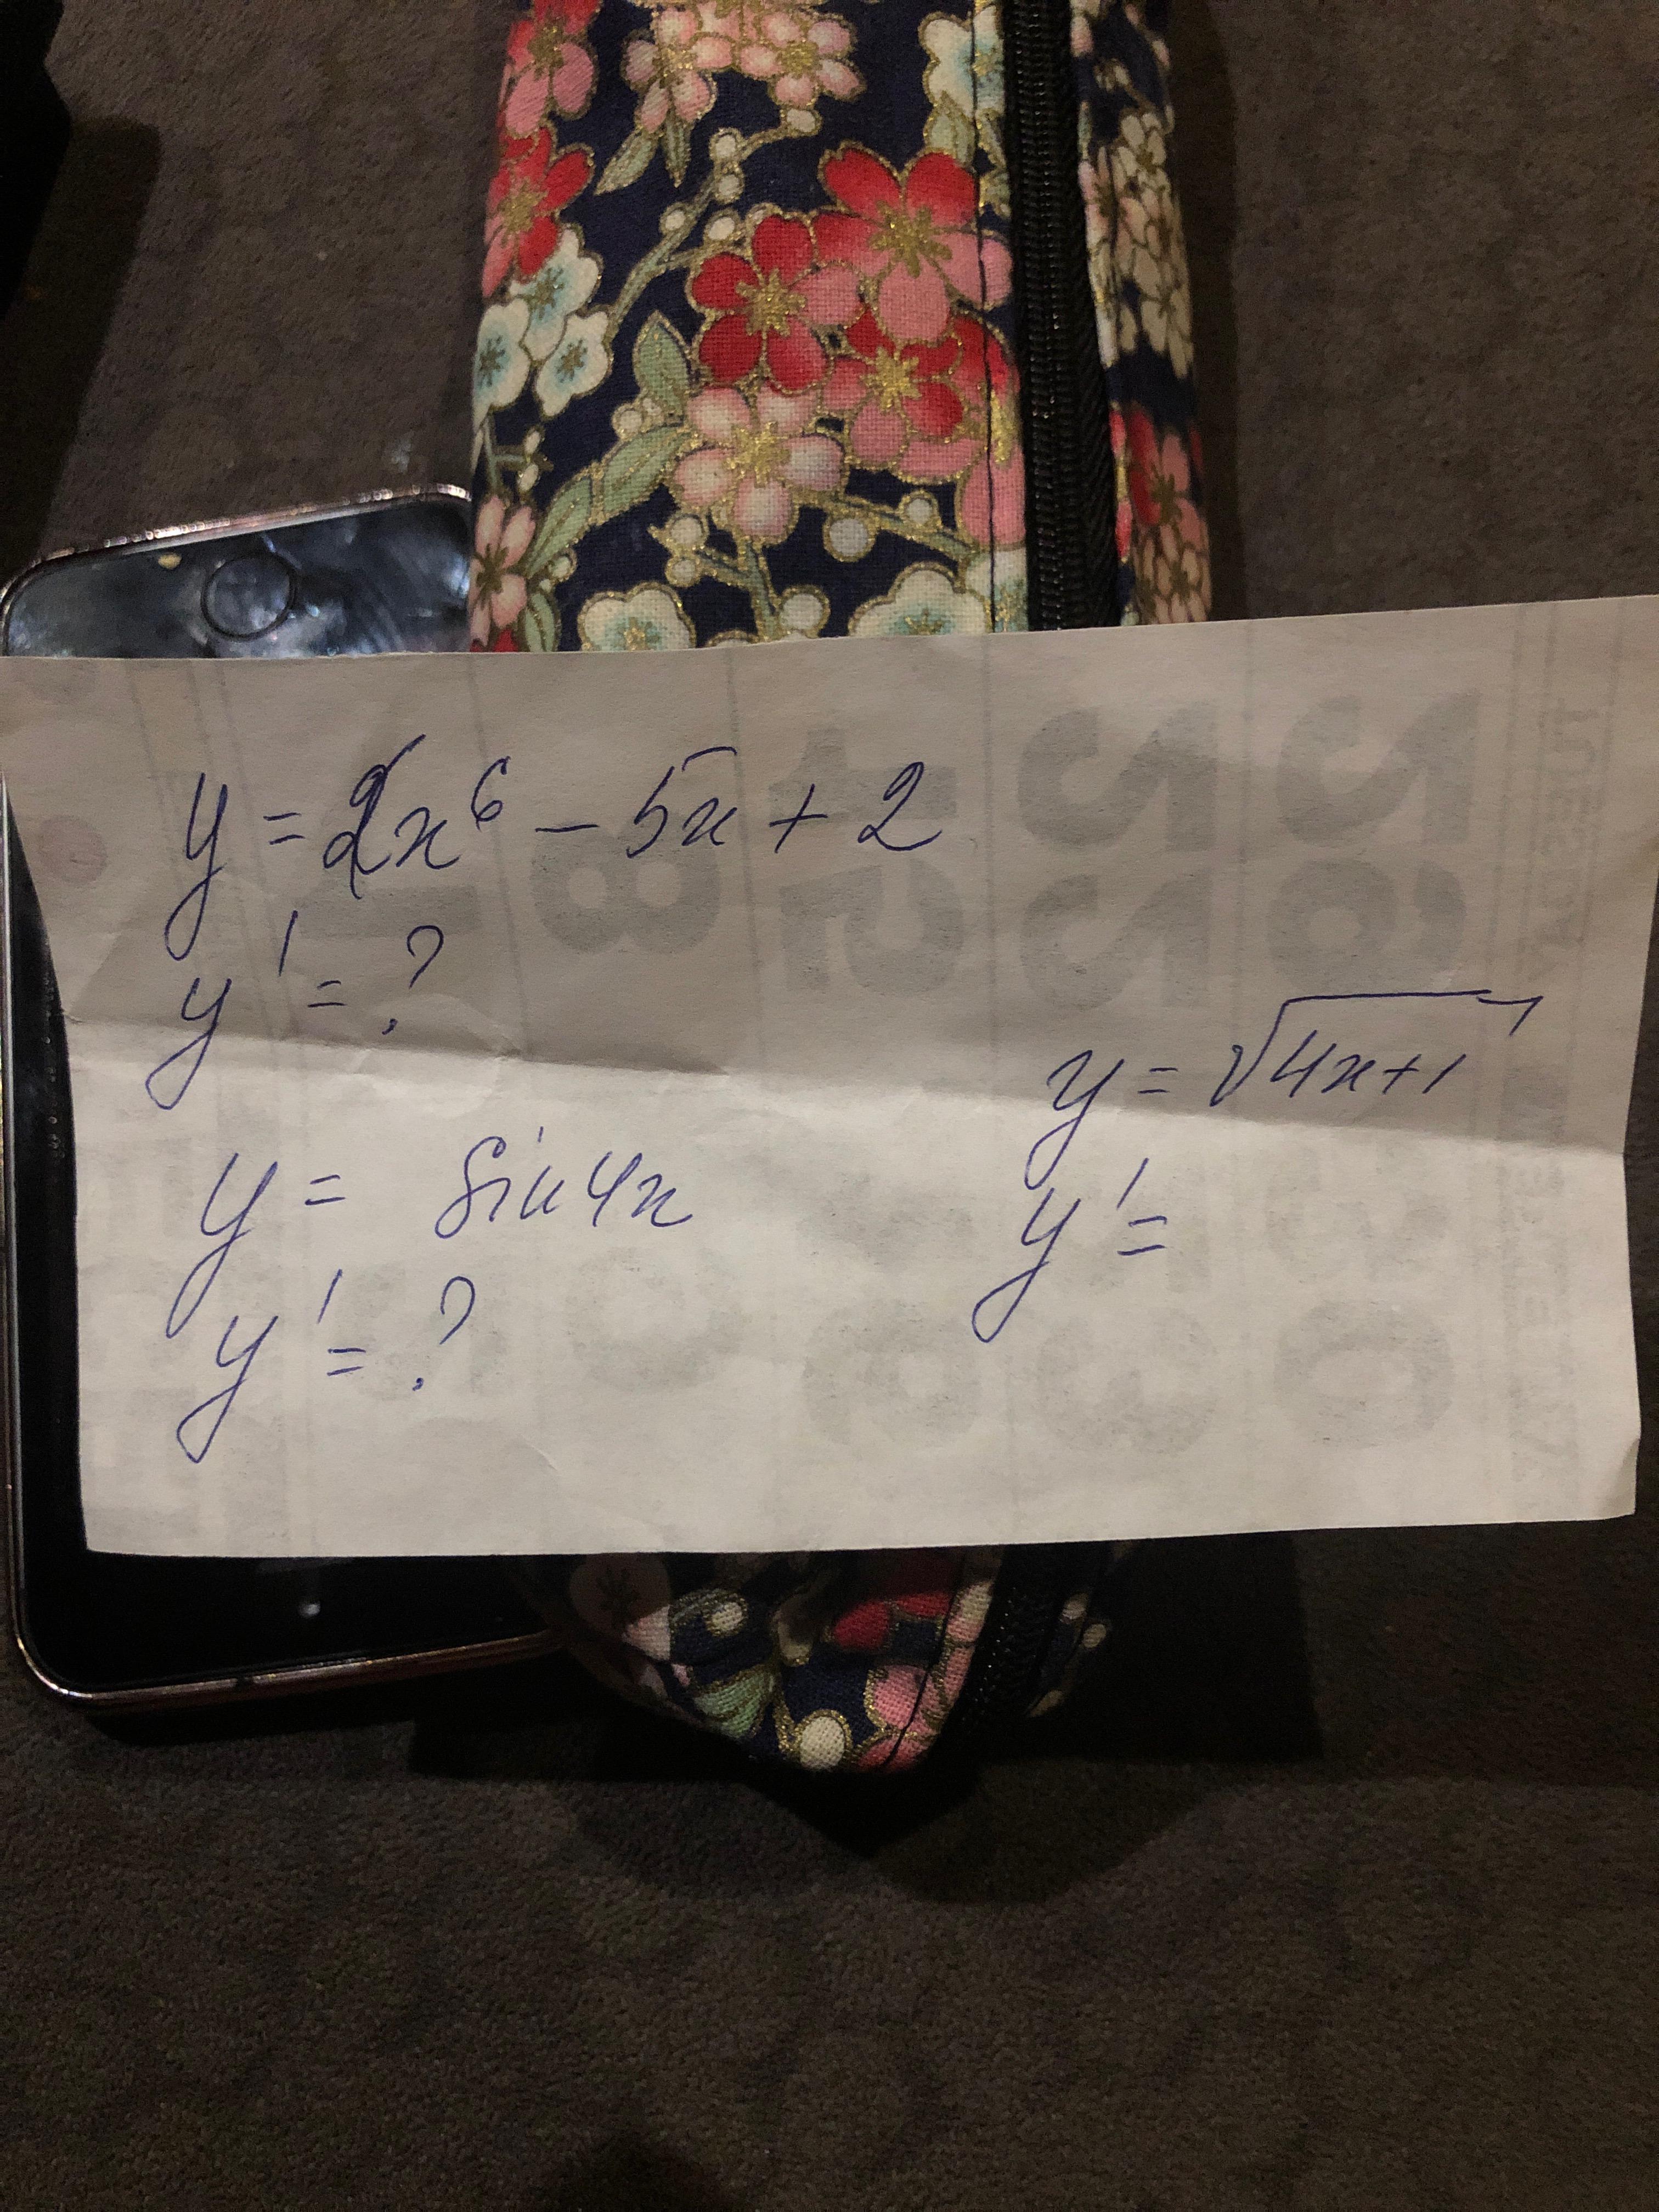 y = 2x⁶ - 5x + 2
y' = ?
y = sin 4x
y' = ?
y = √4x+1
y' =